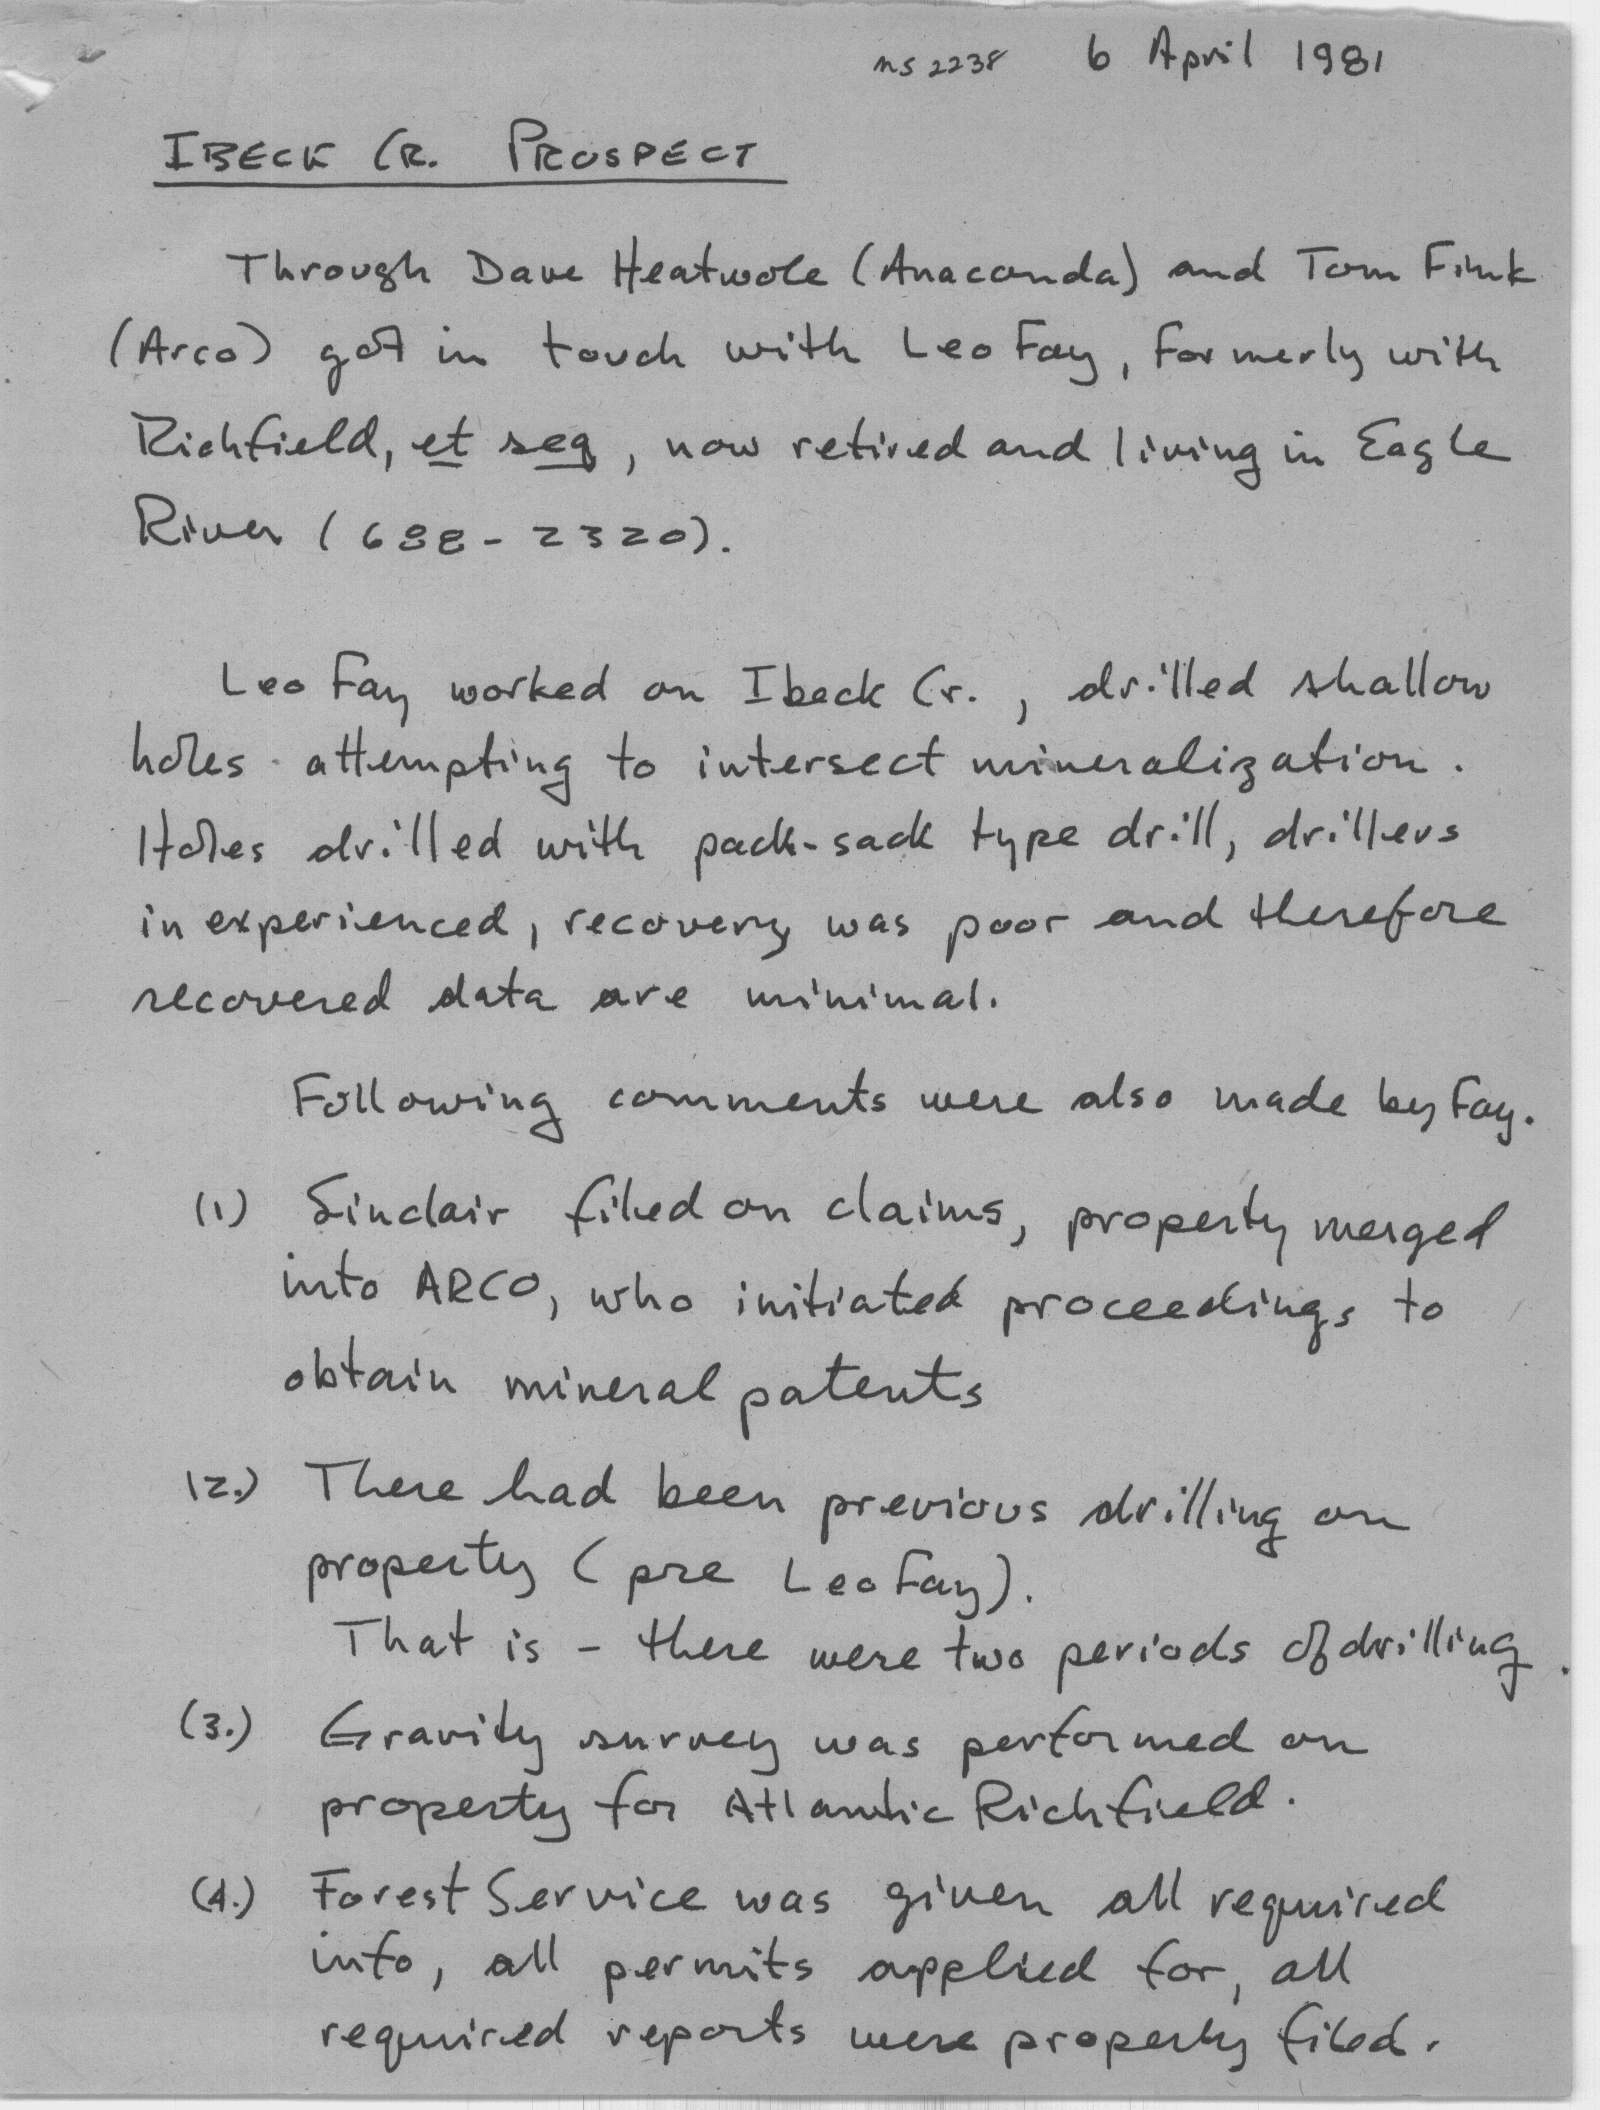 ms 2238 6 April 1981
IBECK CR. PROSPECT
Through Dave Heatwole (Anaconda) and Tom Fink
(Arco) got in touch with Leo Fay, formerly with
Richfield, et seq, now retired and living in Eagle
River (688-2320).
Leo Fay worked on Ibeck Cr., drilled shallow
holes attempting to intersect mineralization.
Holes drilled with pack-sack type drill, drillers
inexperienced, recovery was poor and therefore
recovered data are minimal.
Following comments were also made by Fay.
(1) Sinclair filed on claims, property merged
into ARCO, who initiated proceedings to
obtain mineral patents
(2.) There had been previous drilling on
property (pre Leo Fay).
That is - there were two periods of drilling.
(3.) Gravity survey was performed on
property for Atlantic Richfield.
(4.) Forest Service was given all required
info, all permits applied for, all
required reports were property filed.